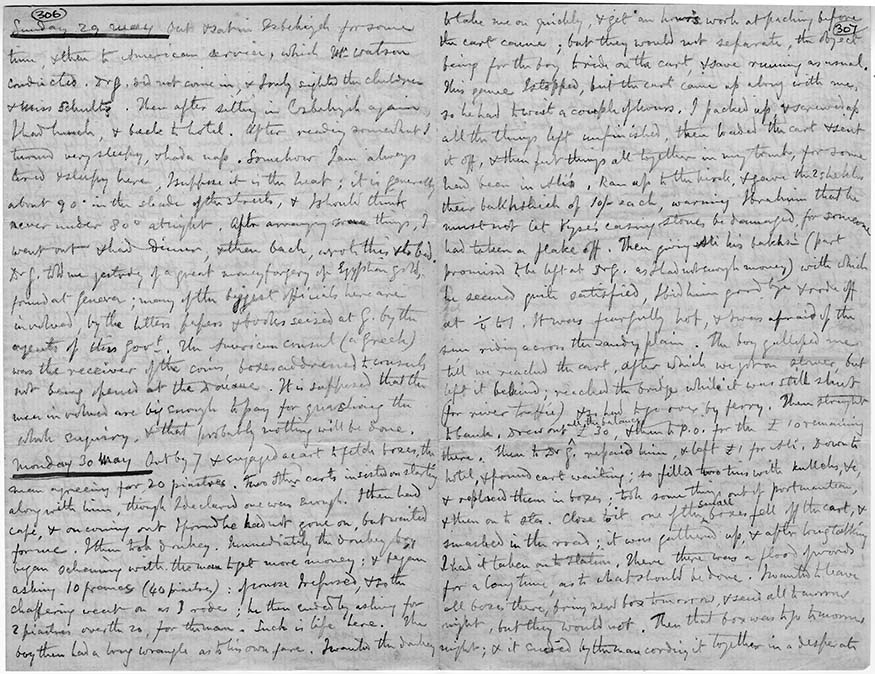 306
Sunday 29 May Out & sat in Esbekiyh for some
time & then to American service, which Mr Watson
conducted. Dr G. did not come in, & I only sighted the children
& Miss Schultz. Then after sitting in Esbekiyh again
I had lunch, & back to hotel. After reading somewhat I
turned very sleepy, & had a nap. Somehow I am always
tired & sleepy here, I suppose it is the heat; it is generally
about 90° in the shade of the streets, & I should think
never under 80° at night. After arranging some things, I
went out & had dinner, & then back, wrote this & to bed.
Dr G. told me yesterday of a great money forgery of Egyptian gold,
found at Geneva; many of the biggest officials here are
involved, by the letters papers & books seized at G. by the
agents of this govt. The American consul (a Greek)
was the receiver of the coins, boxes addressed to consuls
not being opened at the Douane. It is supposed that the
men involved are big enough to pay for quashing the
whole enquiry, & that probably nothing will be done.
Monday 30 May Out by 7 & engaged a cart to fetch boxes, the
man agreeing for 20 piastres. Two other carts insisted on starting
along with him, though I declared one was enough. I then had
café, & on coming out I found he had not gone on, but waited
for me. I then took donkey. Immediately the donkey boy
began scheming with the man to get more money; & began
asking 10 francs (40 piastres): of course I refused, & so the
chaffering went on as I rode; he then ended by asking for
2 piastres over the 20, for the man. Such is life here. The
boy then had a long wrangle as to his own fare. I wanted the donkey
307
to take me on quickly, & get an hour's work at packing before
the cart came; but they would not separate, the object
being for the boy to ride on the cart, & save running as usual.
This game I stopped, but the cart came up along with me,
so he had to wait a couple of hours. I packed up & screwed up
all the things left unfinished, then loaded the cart & sent
it off, & then put things all together in my tomb, for some
had been in Ali's, Ran up to the hirãk, & gave the 2 sheikhs
their bakhshish of 10/- each, warning Ibrahim that he
must not let Vyse's casing stones be damaged for someone
had taken a flake off. Then giving Ali his bakhsh (part
promised to be left at Dr G. as I had not enough money) with which
he seemed quite satisfied, I bid him good bye & rode off
at ¼ to 1. It was fearfully hot, & I was afraid of the
sun riding across the sandy plain. The boy galloped me
till we reached the cart, after which we got on slower, but
left it behind; reached the bridge while it was still shut
(for river traffic) & had to go over by ferry. Then straight
to bank. Drew out the balance £30, & then to P.O. for the £10 remaining
there. Then to Dr G, repaid him, & left £1 for Ali. Down to
hotel, & found cart waiting; so filled two tins with bullets, &c,
& replaced them in boxes; took some things out of portmanteau,
& then on to sta. Close to it one of the small boxes fell off the cart, &
smashed in the road; it was gathered up, & after long talking
I had it taken on to station, There there was a flood of words
for a long time, as to what should be done. I wanted to leave
all boxes there, bring new box tomorrow, & send all tomorrow
night, but they would not. Then that box was to go tomorrow
night; & it ended by the man cording it together in a desperate